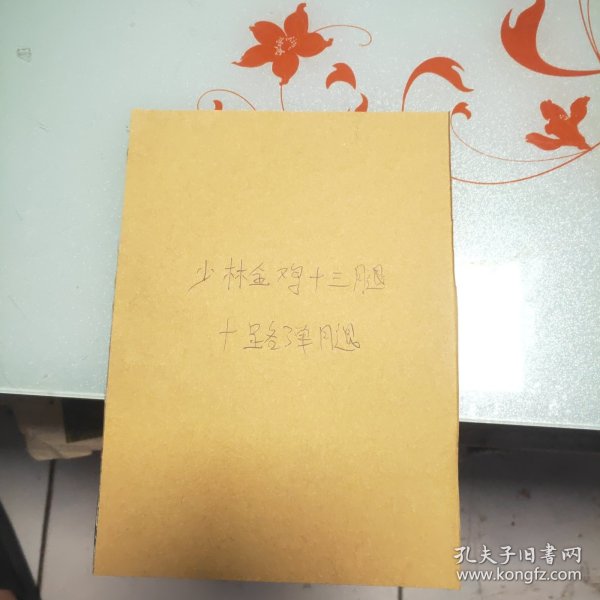 少林金鸡十三腿
十路弹腿
孔夫子旧書网
www.kongfz.com